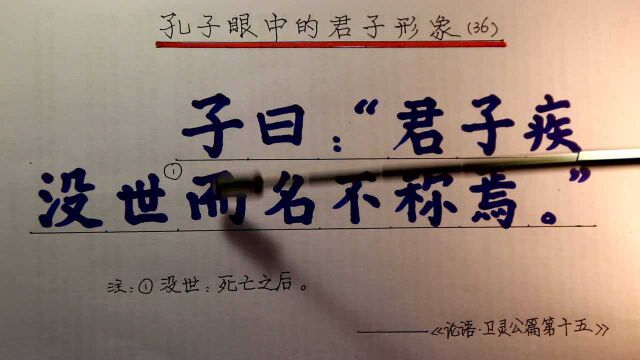 孔子眼中的君子形象(36)
子曰：“君子疾
没世①而名不称焉。”
注：①没世：死亡之后。
——《论语·卫灵公篇第十五》